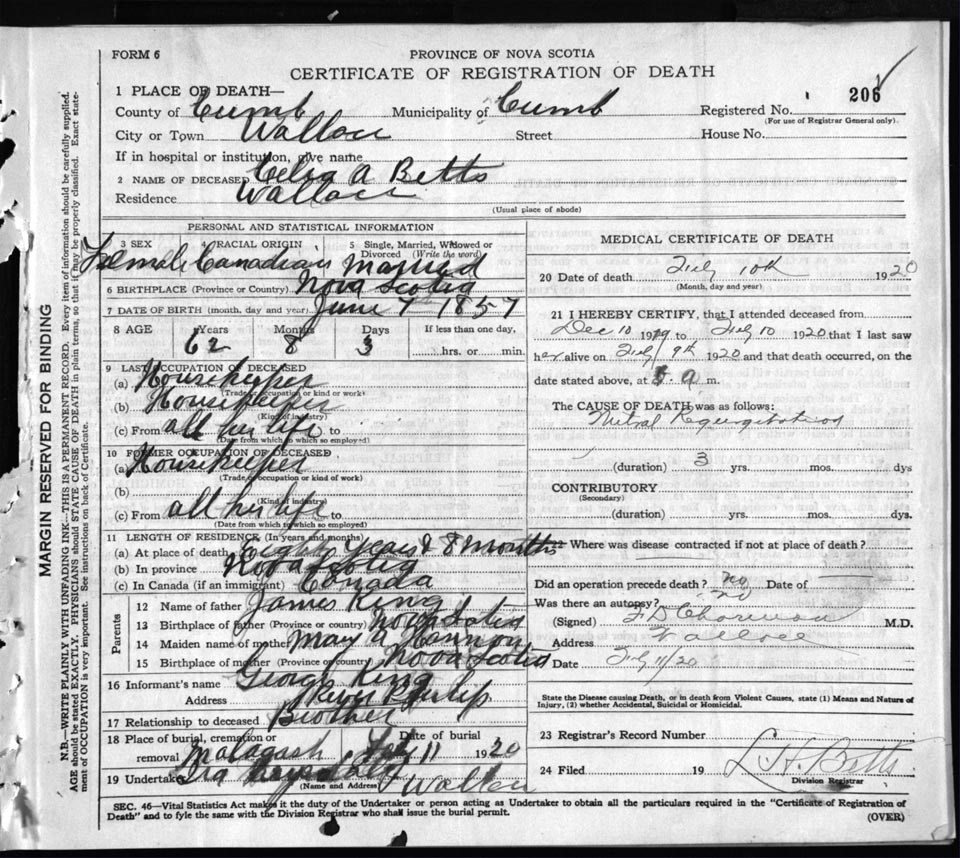 FORM 6
PROVINCE OF NOVA SCOTIA
CERTIFICATE OF REGISTRATION OF DEATH
206
1 PLACE OF DEATH—
County of Cumb Municipality of Cumb Registered No.
(For use of Registrar General only).
City or Town Wallace Street House No.
If in hospital or institution, give name
2 NAME OF DECEASED Celia A Betts
Residence Wallace
(Usual place of abode)
PERSONAL AND STATISTICAL INFORMATION
3 SEX 4 RACIAL ORIGIN 5 Single, Married, Widowed or Divorced (Write the word)
Female Canadian Married
6 BIRTHPLACE (Province or Country) Nova Scotia
7 DATE OF BIRTH (month, day and year) June 7th 1857
8 AGE Years Months Days If less than one day,
62 8 3 hrs. or min.
9 LAST OCCUPATION OF DECEASED
(a) Housekeeper
(Trade occupation or kind or work)
(b) Housekeeper
(Kind of industry)
(c) From all her life to
(Date from which to which so employed)
10 FORMER OCCUPATION OF DECEASED
(a) Housekeeper
(Trade occupation or kind of work)
(b)
(Kind of industry)
(c) From all her life to
(Date from which to which so employed)
11 LENGTH OF RESIDENCE (In years and months)
(a) At place of death Eight years & 8 months
(b) In province Nova Scotia
(c) In Canada (if an immigrant) Canada
Parents
12 Name of father James King
13 Birthplace of father (Province or country) Nova Scotia
14 Maiden name of mother Mary A Hannon
15 Birthplace of mother (Province or country) Nova Scotia
16 Informant's name George King
Address River Philip
17 Relationship to deceased Brother
18 Place of burial, cremation or removal Malagash Date of burial Feby 11 1920
19 Undertaker Ira
(Name and Address) Wallace
MEDICAL CERTIFICATE OF DEATH
20 Date of death Feby 10th 1920
(Month, day and year)
21 I HEREBY CERTIFY, that I attended deceased from
Dec 10 1919 to Feby 10 1920 that I last saw
her alive on Feby 9th 1920 and that death occurred, on the
date stated above, at m.
The CAUSE OF DEATH was as follows:
Mitral Regurgitation
(duration) 3 yrs. mos. dys
CONTRIBUTORY
(Secondary)
(duration) yrs. mos. dys.
Where was disease contracted if not at place of death?
Did an operation precede death? no Date of
Was there an autopsy? no
(Signed) M.D.
Address Wallace
Date Feby 11/20
State the Disease causing Death, or in death from Violent Causes, state (1) Means and Nature of
Injury, (2) whether Accidental, Suicidal or Homicidal.
23 Registrar's Record Number
24 Filed 19 L. H. Betts
Division Registrar
SEC. 46—Vital Statistics Act makes it the duty of the Undertaker or person acting as Undertaker to obtain all the particulars required in the "Certificate of Registration of
Death" and to fyle the same with the Division Registrar who shall issue the burial permit. (OVER)
MARGIN RESERVED FOR BINDING
N.B.—WRITE PLAINLY WITH UNFADING INK—THIS IS A PERMANENT RECORD. Every item of information should be carefully supplied.
AGE should be stated EXACTLY. PHYSICIANS should STATE CAUSE OF DEATH in plain terms, so that it may be properly classified. Exact state-
ment of OCCUPATION is very important. See instructions on back of Certificate.